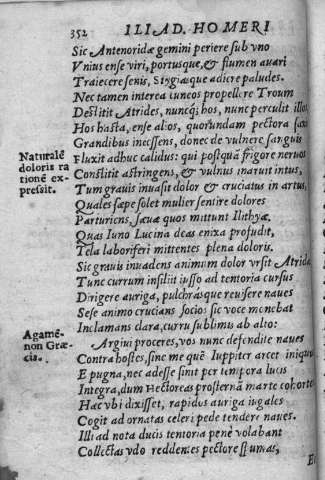 352 ILIAD. HOMERI
Sic Antenoridæ gemini periere sub vno
Vnius ense viri, portusque, & flumen auari
Traiecere senis, Stygiæque adiere paludes.
Nec tamen interea iuncos propellere Troum
Destitit Atrides, nuncq; hos, nunc perculit illos
Hos hasta, ense alios, quorundam pectora saxis
Grandibus incessens, donec de vulnere sanguis
Naturalẽ
doloris ra
tionẽ ex-
pressit.
Fluxit adhuc calidus: qui postquã frigore neruos
Constitit astringens, & vulnus inaruit intus,
Tum grauis inuasit dolor & cruciatus in artus,
Quales sæpe solet mulier sentire dolores
Parturiens, sæua quos mittunt Ilithyæ,
Quas Iuno Lucina deas enixa profudit,
Tela laboriferi mittentes plena doloris.
Sic grauis inuadens animum dolor vrsit Atridæ
Tunc currum insiliit iusso ad tentoria cursus
Dirigere auriga, pulchrasque reuisere naues
Sese animo crucians socios sic voce monebat
Inclamans clara, curru sublimis ab alto:
Agamẽ-
non Græ-
cis.
Argiui proceres, vos nunc defendite naues
Contra hostes, sine me quẽ Iuppiter arcet iniquus
E pugna, nec adesse sinit per tempora lucis
Integra, dum Hectoreas prosternã marte cohortes
Hæc vbi dixisset, rapidus auriga iugales
Cogit ad ornatas celeri pede tendere naues.
Illi ad nota ducis tentoria penè volabant
Collectas vdo reddentes pectore spumas,